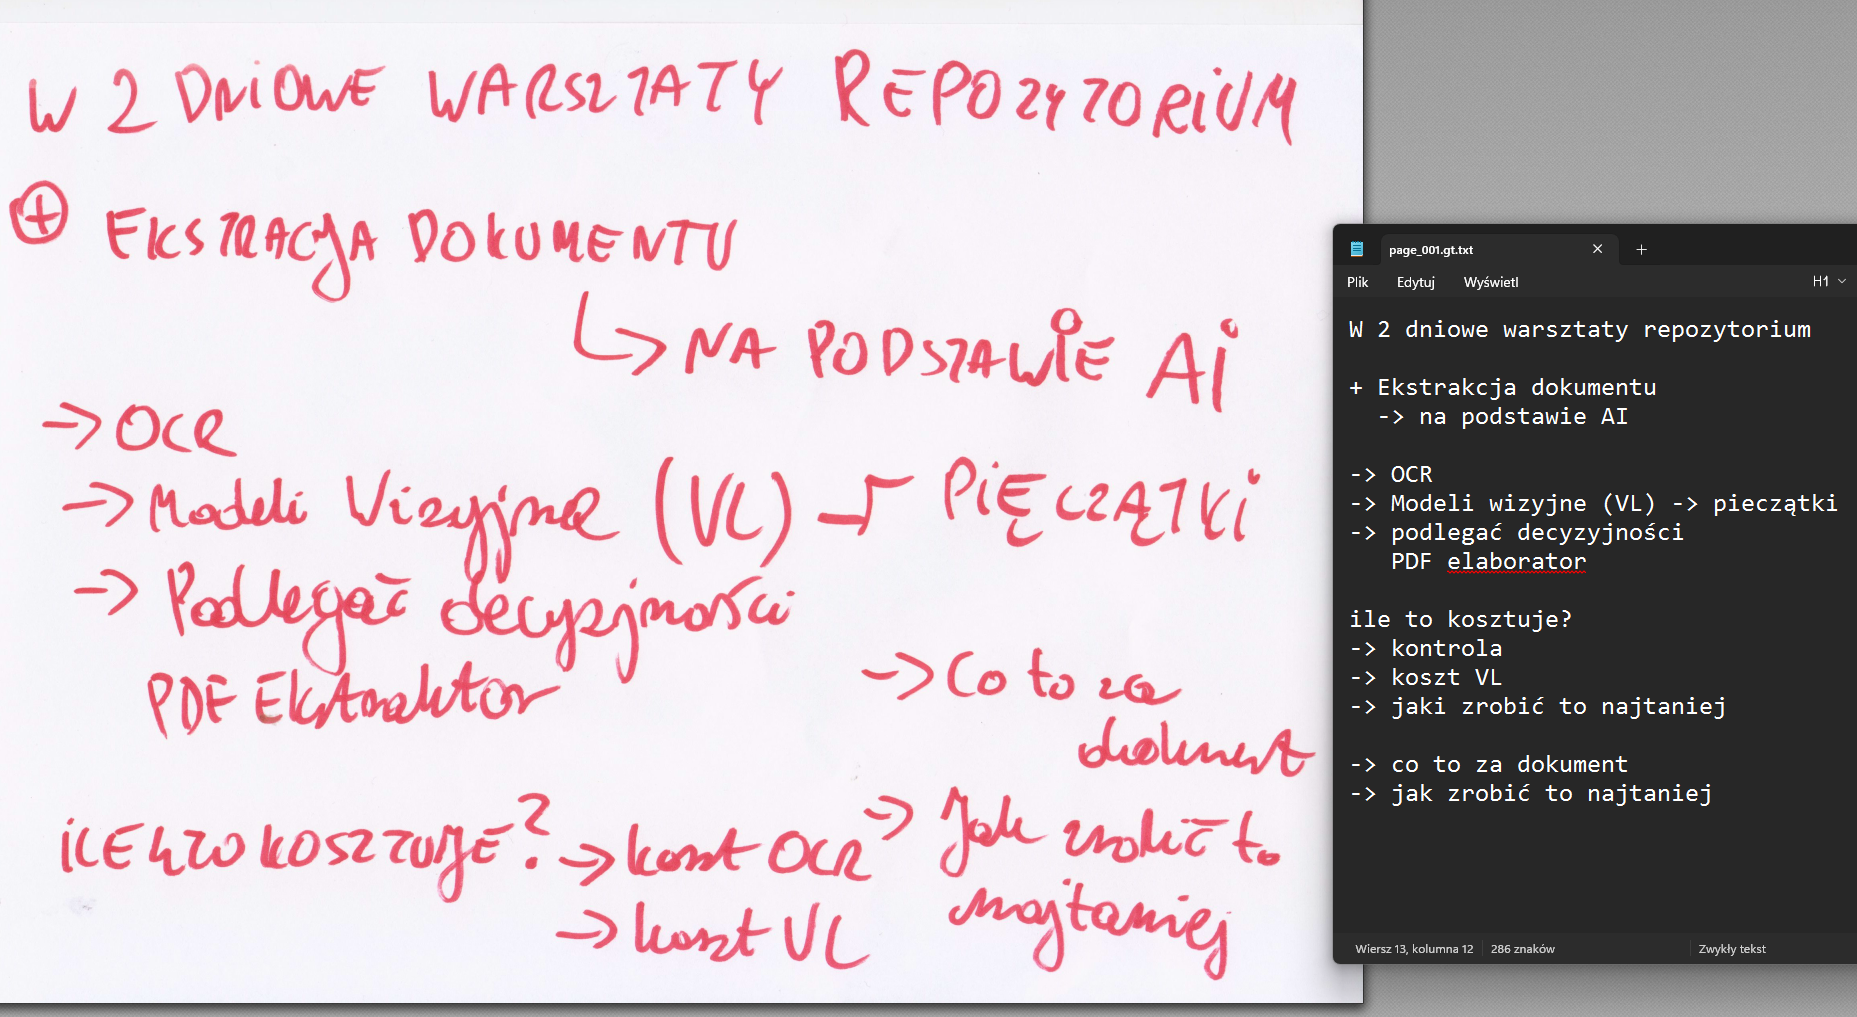 W 2 DNiOWE WARSZTATY REPOZYTORiUM
+ EKSTRACJA DOKUMENTU
↳ NA PODSTAWIE Ai
→ OCR
→ Modeli Wizyjne (VL) → PiĘCZĄTKi
→ Podlegać decyzjności
PDF Ekstraktor
→ Co to za
dokument
iLE TO KOSZTUJE?
→ koszt OCR
→ koszt VL
→ Jak zrobić to
najtaniej
page_001.gt.txt
Plik Edytuj Wyświetl H1
W 2 dniowe warsztaty repozytorium
+ Ekstrakcja dokumentu
-> na podstawie AI
-> OCR
-> Modeli wizyjne (VL) -> pieczątki
-> podlegać decyzyjności
PDF elaborator
ile to kosztuje?
-> kontrola
-> koszt VL
-> jaki zrobić to najtaniej
-> co to za dokument
-> jak zrobić to najtaniej
Wiersz 13, kolumna 12 286 znaków Zwykły tekst